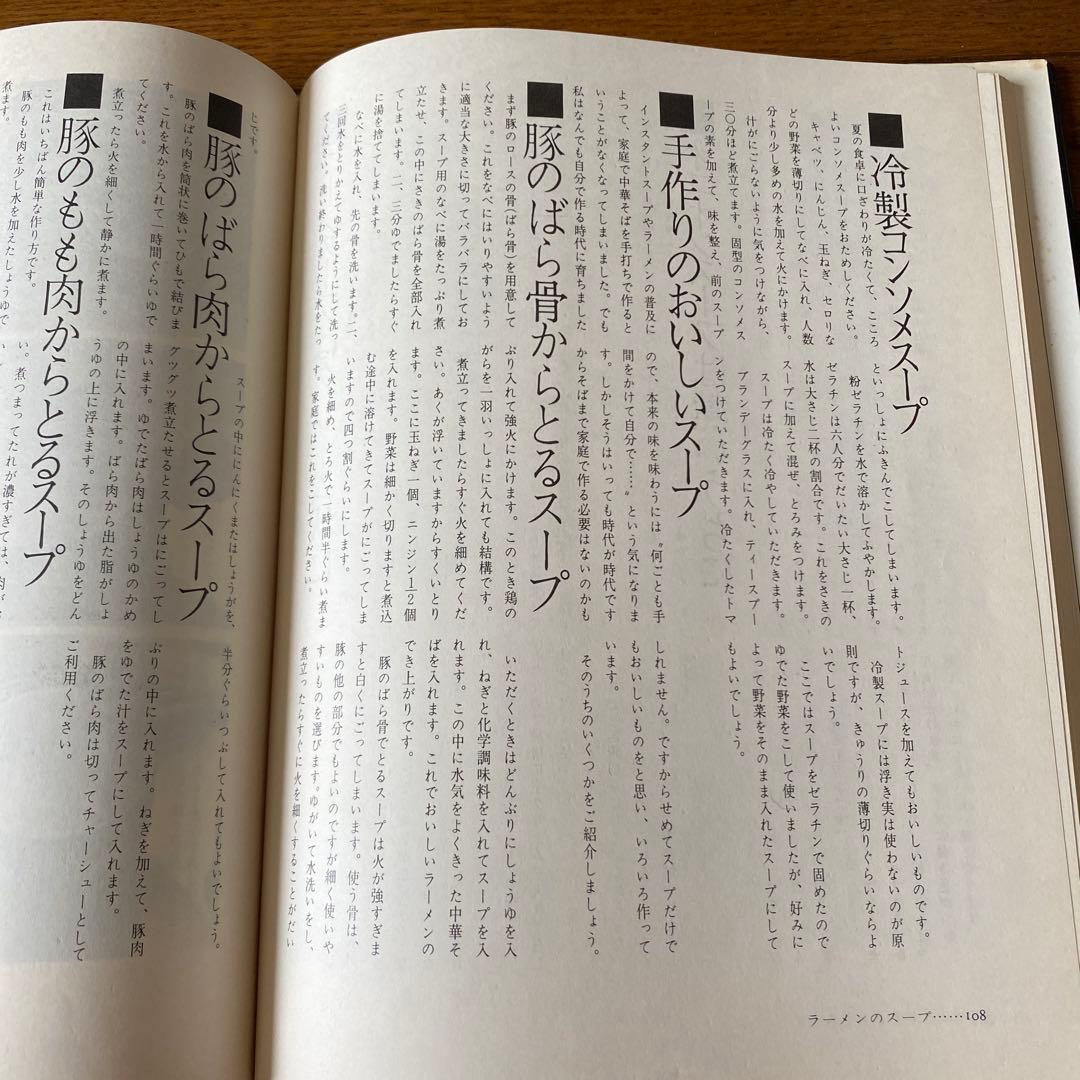 ■冷製コンソメスープ
夏の食卓に口ざわりが冷たくて、こころ
よいコンソメスープをおためしください。
キャベツ、にんじん、玉ねぎ、セロリな
どの野菜を薄切りにしてなべに入れ、人数
分より少し多めの水を加えて火にかけます。
汁がにごらないように気をつけながら、
三〇分ほど煮立てます。固型のコンソメス
ープの素を加えて、味を整え、前のスープ
といっしょにふきんでこしてしまいます。
粉ゼラチンを水で溶かしてふやかします。
ゼラチンは六人分でだいたい大さじ一杯、
水は大さじ二杯の割合です。これをさきの
スープに加えて混ぜ、とろみをつけます。
スープは冷たく冷やしていただきます。
ブランデーグラスに入れ、ティースプー
ンをつけていただきます。冷たくしたトマ
トジュースを加えてもおいしいものです。
冷製スープには浮き実は使わないのが原
則ですが、きゅうりの薄切りぐらいならよ
いでしょう。
ここではスープをゼラチンで固めたので
ゆでた野菜をこして使いましたが、好みに
よって野菜をそのまま入れたスープにして
もよいでしょう。
■手作りのおいしいスープ
インスタントスープやラーメンの普及に
よって、家庭で中華そばを手打ちで作ると
いうことがなくなってしまいました。でも
私はなんでも自分で作る時代に育ちました
ので、本来の味を味わうには〝何ごとも手
間をかけて自分で……〟という気になりま
す。しかしそうはいっても時代が時代です
からそばまで家庭で作る必要はないのかも
しれません。ですからせめてスープだけで
もおいしいものをと思い、いろいろ作って
います。
そのうちのいくつかをご紹介しましょう。
■豚のばら骨からとるスープ
まず豚のロースの骨(ばら骨)を用意して
ください。これをなべにはいりやすいよう
に適当な大きさに切ってバラバラにしてお
きます。スープ用のなべに湯をたっぷり煮
立たせ、この中にさきのばら骨を全部入れ
てしまいます。二、三分ゆでましたらすぐ
に湯を捨ててしまいます。
なべに水を入れ、先の骨を洗います。二、
三回水をとりかえてゆするようにして洗っ
てください。洗い終わりましたら水をたっ
ぷり入れて強火にかけます。このとき鶏の
がらを一羽いっしょに入れても結構です。
煮立ってきましたらすぐ火を細めてくだ
さい。あくが浮いていますからすくいとり
ます。ここに玉ねぎ一個、ニンジン1⁄2個
を入れます。野菜は細かく切りますと煮込
む途中に溶けてきてスープがにごってしま
いますので四つ割ぐらいにします。
火を細め、とろ火で一時間半ぐらい煮ま
す。家庭ではこれをこしてください。
いただくときはどんぶりにしょうゆを入
れ、ねぎと化学調味料を入れてスープを入
れます。この中に水気をよくきった中華そ
ばを入れます。これでおいしいラーメンの
でき上がりです。
豚のばら骨でとるスープは火が強すぎま
すと白くにごってしまいます。使う骨は、
豚の他の部分でもよいのですが細く使いや
すいものを選びます。ゆがいて水洗いをし、
煮立ったらすぐに火を細くすることがだい
ラーメンのスープ……108
じです。
■豚のばら肉からとるスープ
豚のばら肉を筒状に巻いてひもで結びま
す。これを水から入れて一時間ぐらいゆで
てください。
煮立ったら火を細くして静かに煮ます。
スープの中ににんにくまたはしょうがを、
半分ぐらいつぶして入れてもよいでしょう。
グツグツ煮立たせるとスープはにごってし
まいます。ゆでたばら肉はしょうゆのかめ
の中に入れます。ばら肉から出た脂がしょ
うゆの上に浮きます。そのしょうゆをどん
ぶりの中に入れます。ねぎを加えて、豚肉
をゆでた汁をスープにして入れます。
豚のばら肉は切ってチャーシューとして
ご利用ください。
■豚のもも肉からとるスープ
これはいちばん簡単な作り方です。
豚のもも肉を少し水を加えたしょうゆで
煮ます。
い。煮つまってたれが濃すぎては、肉が